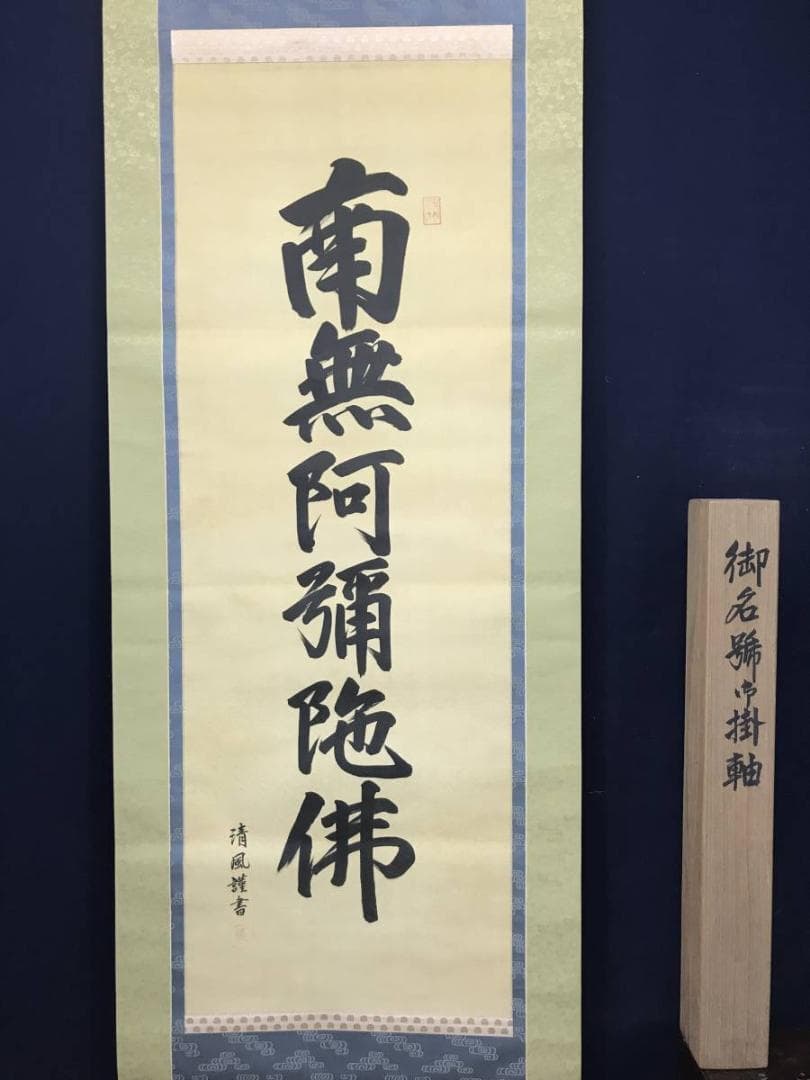 南無阿彌陀佛
清風謹書
御名號御掛軸